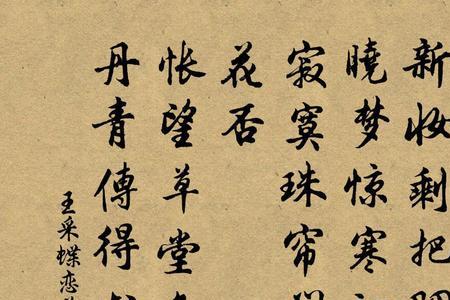 新妆剩把
晓梦惊寒
寂寞珠帘
花否
怅望草堂
丹青傳得
王采蝶恋